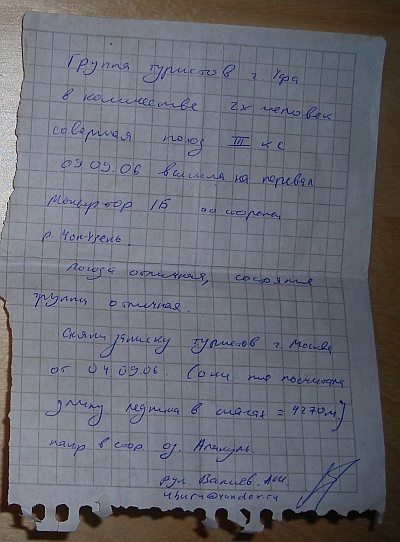 Группа туристов г. Уфа
в количестве 2х человек
совершая поход III кс
09.09.06 вышла на перевал
1Б со стороны
р. Чон-Узень.
Погода отличная, состояние
группы отличная.
Сняли записку туристов г. Москва
от 04.09.06. (они по посчитали
длину ледника в шагах = 4270м)
напр в стор оз. Алакуль.
рук. Валиев